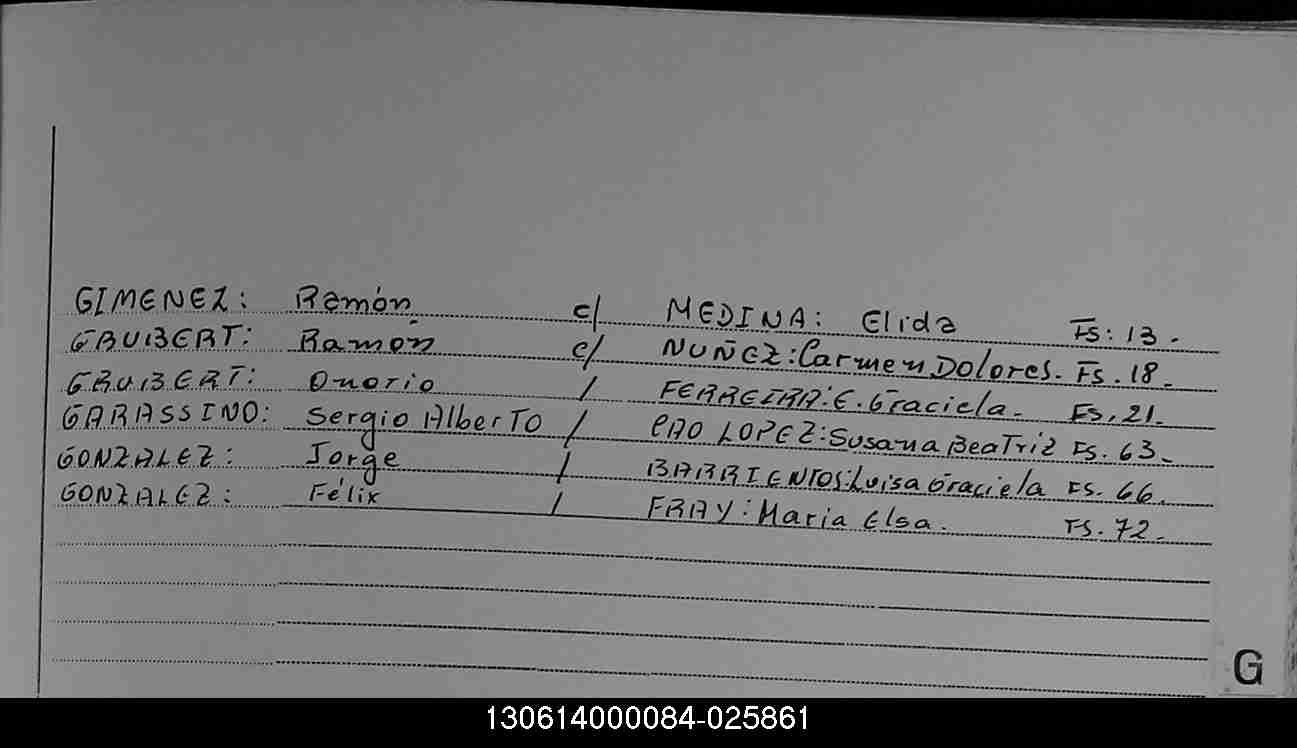 GIMENEZ: Ramón c/ MEDINA: Elida Fs: 13.
GRUIBERT: Ramón c/ NUÑEZ: Carmen Dolores. Fs. 18.
GRUIBERT: Onorio / FERREIRA: E. Graciela. Fs. 21.
GARASSINO: Sergio Alberto / PAO LOPEZ: Susana Beatriz Fs. 63.
GONZALEZ: Jorge / BARRIENTOS: Luisa Graciela Fs. 66.
GONZALEZ: Félix / FRAY: Maria Elsa. Fs. 72.
G
130614000084-025861